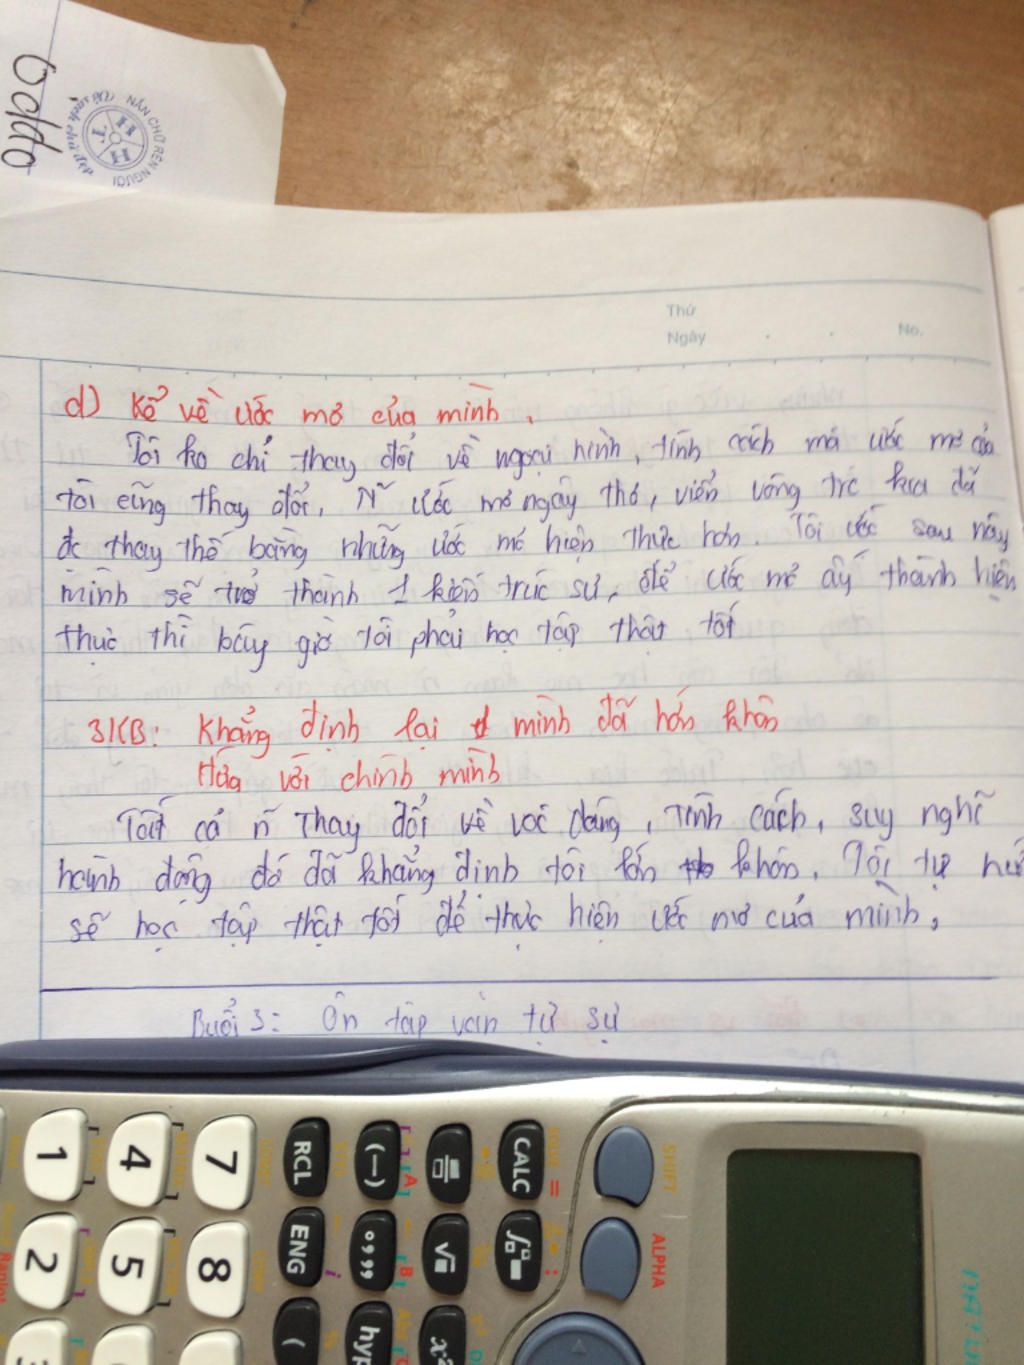 oppo
NẮN CHỮ RÈN NGƯỜI
HTHH
Thứ
Ngày . . No.
d) Kể về ước mơ của mình.
Tôi ko chỉ thay đổi về ngoại hình, tính cách mà ước mơ của
tôi cũng thay đổi. N~ ước mơ ngây thơ, viển vông trc kia đã
đc thay thế bằng những ước mơ hiện thực hơn. Tôi ước sau này
mình sẽ trở thành 1 kiến trúc sư, để ước mơ ấy thành hiện
thực thì bây giờ tôi phải học tập thật tốt
3KB: Khẳng định lại mình đã lớn khôn
Hứa với chính mình
Tất cả n~ thay đổi về vóc dáng, tính cách, suy nghĩ
hành động đó đã khẳng định tôi lớn khôn. Tôi tự hứa
sẽ học tập thật tốt để thực hiện ước mơ của mình.
Buổi 3: Ôn tập văn tự sự
SHIFT
ALPHA
CALC
RCL
ENG
(—)
°,,,
hyp
x²
(
7
8
4
5
1
2